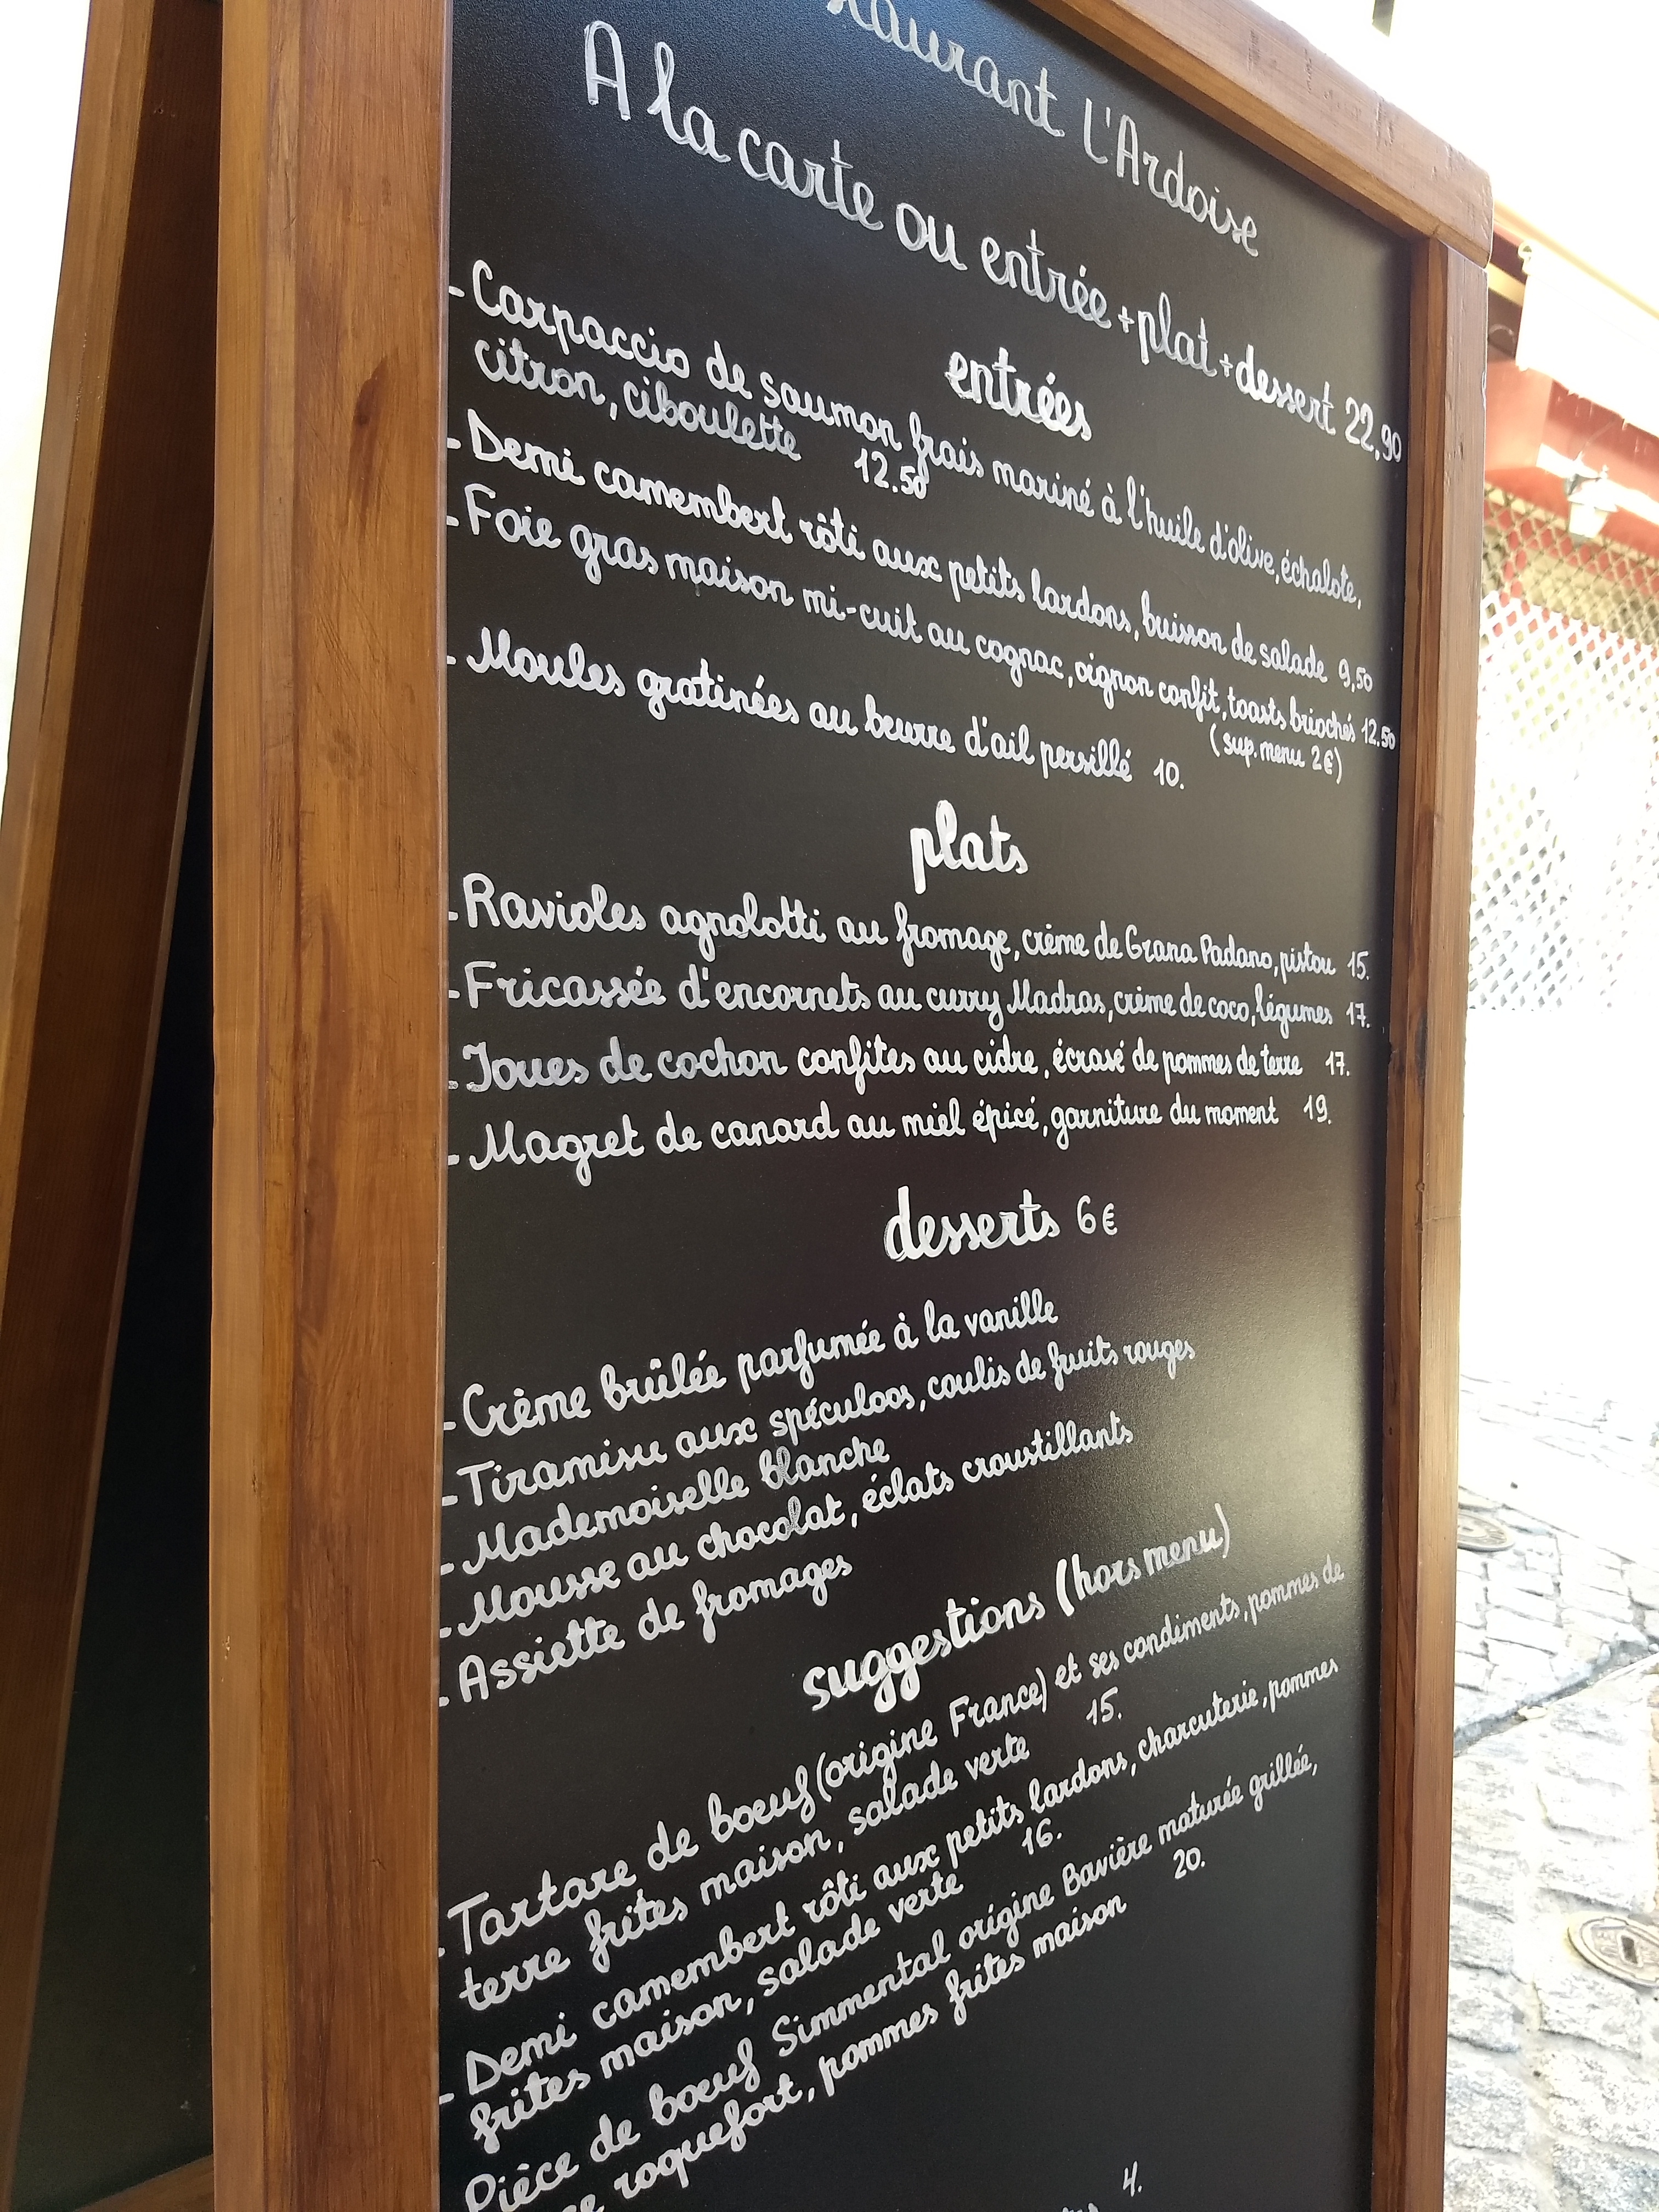 L'Ardoise
A la carte ou entrée + plat + dessert 22,90
entrées
- Carpaccio de saumon frais mariné à l'huile d'olive, échalote,
citron, ciboulette 12.50
- Demi camembert rôti aux petits lardons, buisson de salade 9,50
- Foie gras maison mi-cuit au cognac, oignon confit, toasts briochés 12.50
(sup. menu 2€)
- Moules gratinées au beurre d'ail persillé 10.
plats
- Ravioles agnolotti au fromage, crème de Grana Padano, pistou 15.
- Fricassée d'encornets au curry Madras, crème de coco, légumes 17.
- Joues de cochon confites au cidre, écrasé de pommes de terre 17.
- Magret de canard au miel épicé, garniture du moment 19.
desserts 6€
- Crème brûlée parfumée à la vanille
- Tiramisu aux spéculoos, coulis de fruits rouges
- Mademoiselle blanche
- Mousse au chocolat, éclats croustillants
- Assiette de fromages
suggestions (hors menu)
- Tartare de boeuf (origine France) et ses condiments, pommes de
terre frites maison, salade verte 15.
- Demi camembert rôti aux petits lardons, charcuterie, pommes
frites maison, salade verte 16.
Pièce de boeuf Simmental origine Bavière maturée grillée,
roquefort, pommes frites maison 20.
4.